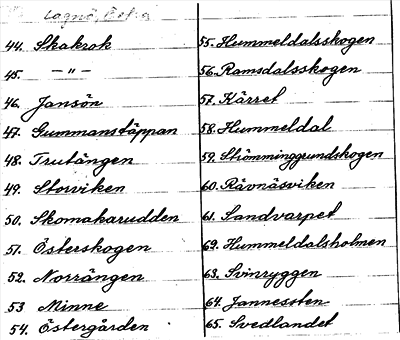 Lagnö,
44. Skakrok
45. — " —
46. Jansön
47. Gummanstäppan
48. Trutängen
49. Storviken
50. Skomakarudden
51. Österskogen
52. Norrängen
53 Minne
54. Östergården
55. Hummeldalsskogen
56. Ramsdalsskogen
57. Kärret
58. Hummeldal
59. Strömminggrundskogen
60. Rävnäsviken
61. Sandvarpet
62. Hummeldalsholmen
63. Svinryggen
64. Janneseten
65. Svedlandet